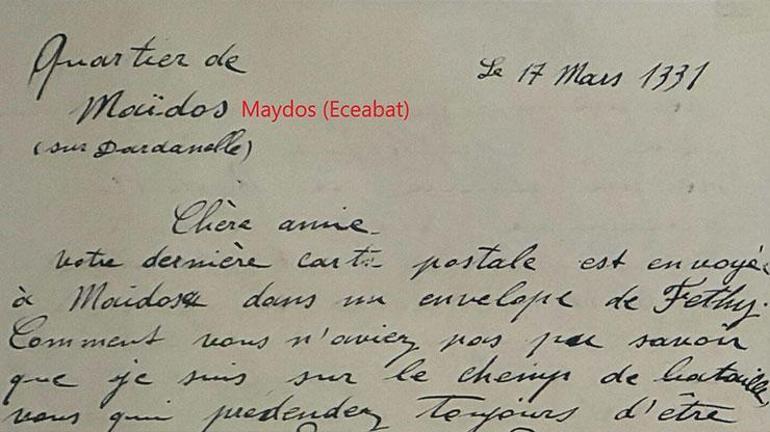 Quartier de
Le 17 Mars 1331
Maïdos Maydos (Eceabat)
(sur Dardanelle)
Chère amie
votre dernière carte postale est envoyée
à Maidos dans un envelope de Fethy.
Comment vous n'aviez pas pu savoir
que je suis sur le chemp de bataille,
vous qui prédendez toujours d'être